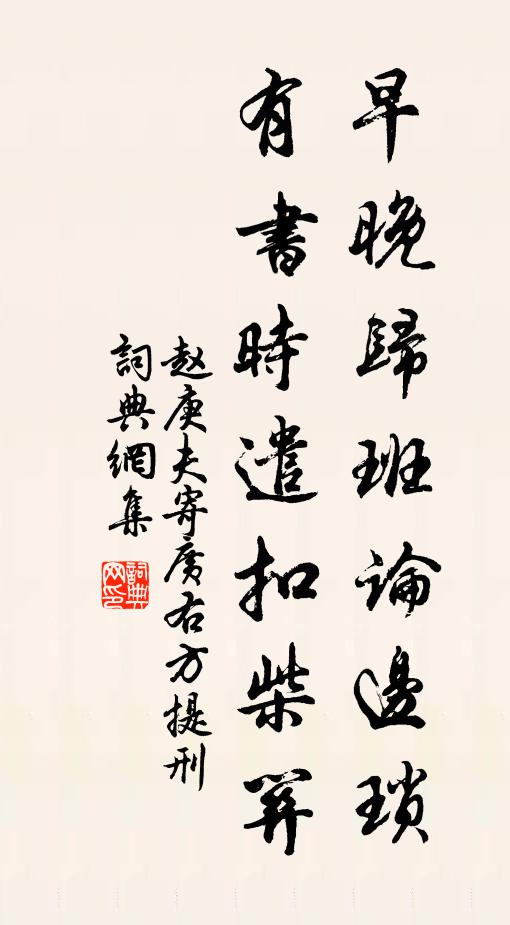 早晚歸班論邊瑣
有書時遣扣柴關
赵庚夫寄廣右方提刑
詞典網集
詞典网印